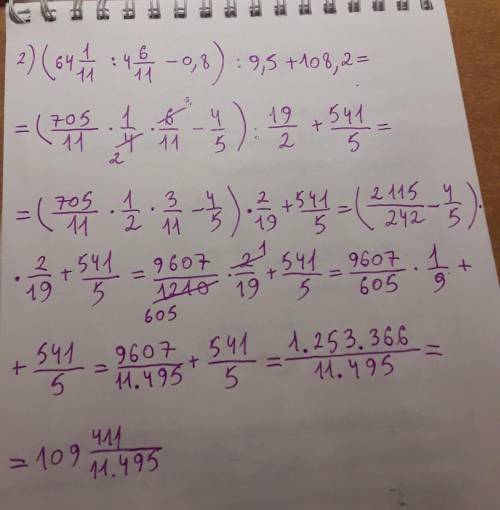 2) (64 1/11 : 4 6/11 − 0,8) : 9,5 + 108,2 =
= (705/11 · 1/4 2 · 6/11 3 − 4/5) : 19/2 + 541/5 =
= (705/11 · 1/2 · 3/11 − 4/5) · 2/19 + 541/5 = (2115/242 − 4/5) ·
· 2/19 + 541/5 = 9607/1210 605 · 2/19 1 + 541/5 = 9607/605 · 1/9 +
+ 541/5 = 9607/11.495 + 541/5 = 1.253.366/11.495 =
= 109 411/11.495